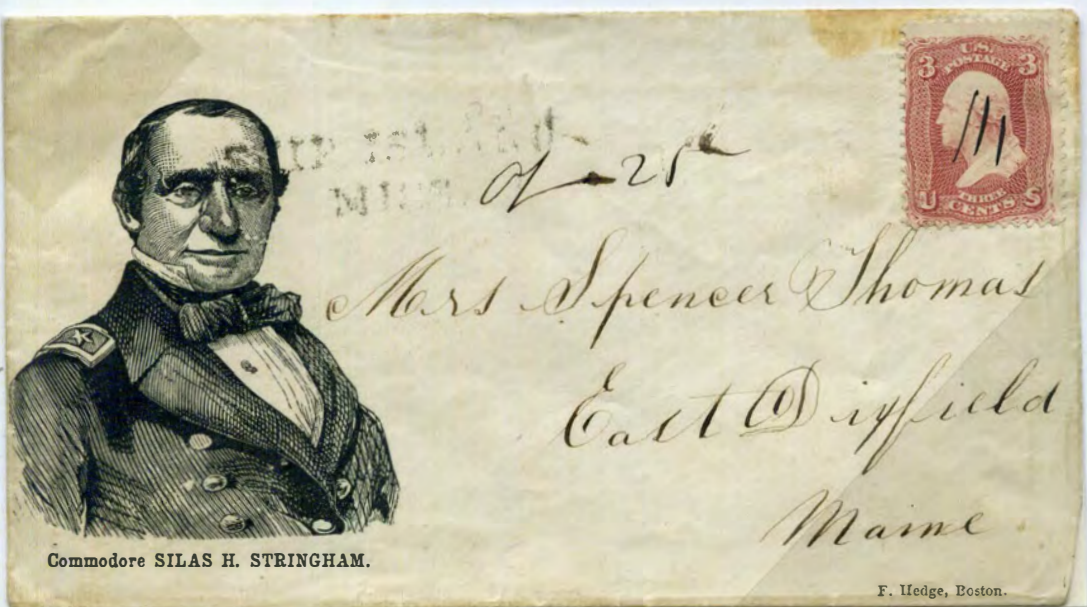 3 U.S. 3
POSTAGE
U THREE S
CENTS
Mrs Spencer Thomas
East Dixfield
Maine
Commodore SILAS H. STRINGHAM.
F. Hedge, Boston.